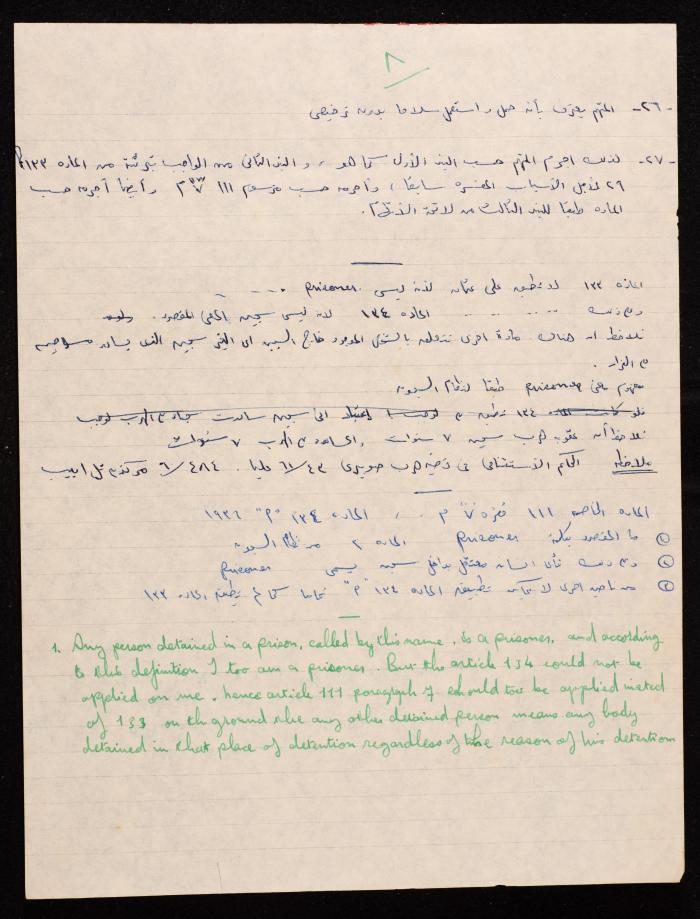 ٨
-٢٦- المتهم يعترف بأنه حمل واستعمل سلاحا بدون ترخيص
-٢٧- لذلك اجرم المتهم حسب البند الأول كما هو ، و البند الثاني من الواجب تبرئته من الماده ١٣٣
٢٩ لأجل الأسباب المفسره سابقا ، وأجرمه حسب مرسوم ١١١ وأيضا أجرمه حسب
الماده طبقا للبند الثالث من لائحة
الماده ١٣٣ لا تنطبق على لانه ليس prisoner . . . .
ومع ذلك . . . . الماده ١٣٤ لانه ليس سجين بالمعنى المقصود .
نلاحظ ان هناك مادة اخرى تتعلق بالشخص الموجود خارج السجن اي الغير سجين الذي يساعد
مفهوم معنى prisoner طبقا لنظام السجون
١٣٤
نلاحظ أنه عقوبة هرب سجين ٧ سنوات ٧ سنوات
ملاحظه الحكم الاستئنافي في قضية هرب ٦١/٤٣ عليا . ٦/٤٨٤ مركزية تل ابيب
الماده الخاصه ١١١ فقره ٧ م . ، الماده ١٣٤ "م" ١٩٣٦
١) ما المقصود بكلمة prisoner الماده ٢ من نظام السجون
٢) ومع ذلك فأن انسان معتقل بداخل سجن يسمى prisoner
٣) من ناحية اخرى لا يمكن تطبيق الماده ١٣٤ "م" تماما كما لم تطبق الماده ١٣٣
1. Any person detained in a prison, called by this name, is a prisoner, and according
to this definition I too am a prisoner. But the article 134 could not be
applied on me. hence article 111 paragraph 7 should too be applied insted
of 133 on th ground the any other detained person means any body
detained in that place of detention regardless of the reason of his detention